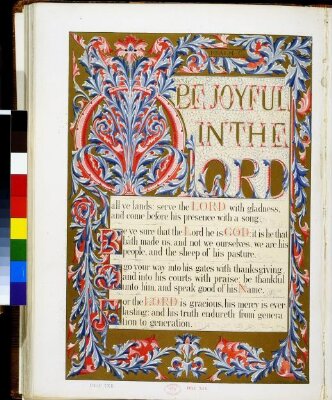 O BE JOYFUL
IN THE
LORD
all ye lands: serve the LORD with gladness,
and come before his presence with a song.
Be ye sure that the Lord he is GOD; it is he that
hath made us, and not we ourselves; we are his
people, and the sheep of his pasture.
O go your way into his gates with thanksgiving,
and into his courts with praise; be thankful
unto him, and speak good of his Name.
For the LORD is gracious, his mercy is ever
lasting: and his truth endureth from genera
tion to generation.